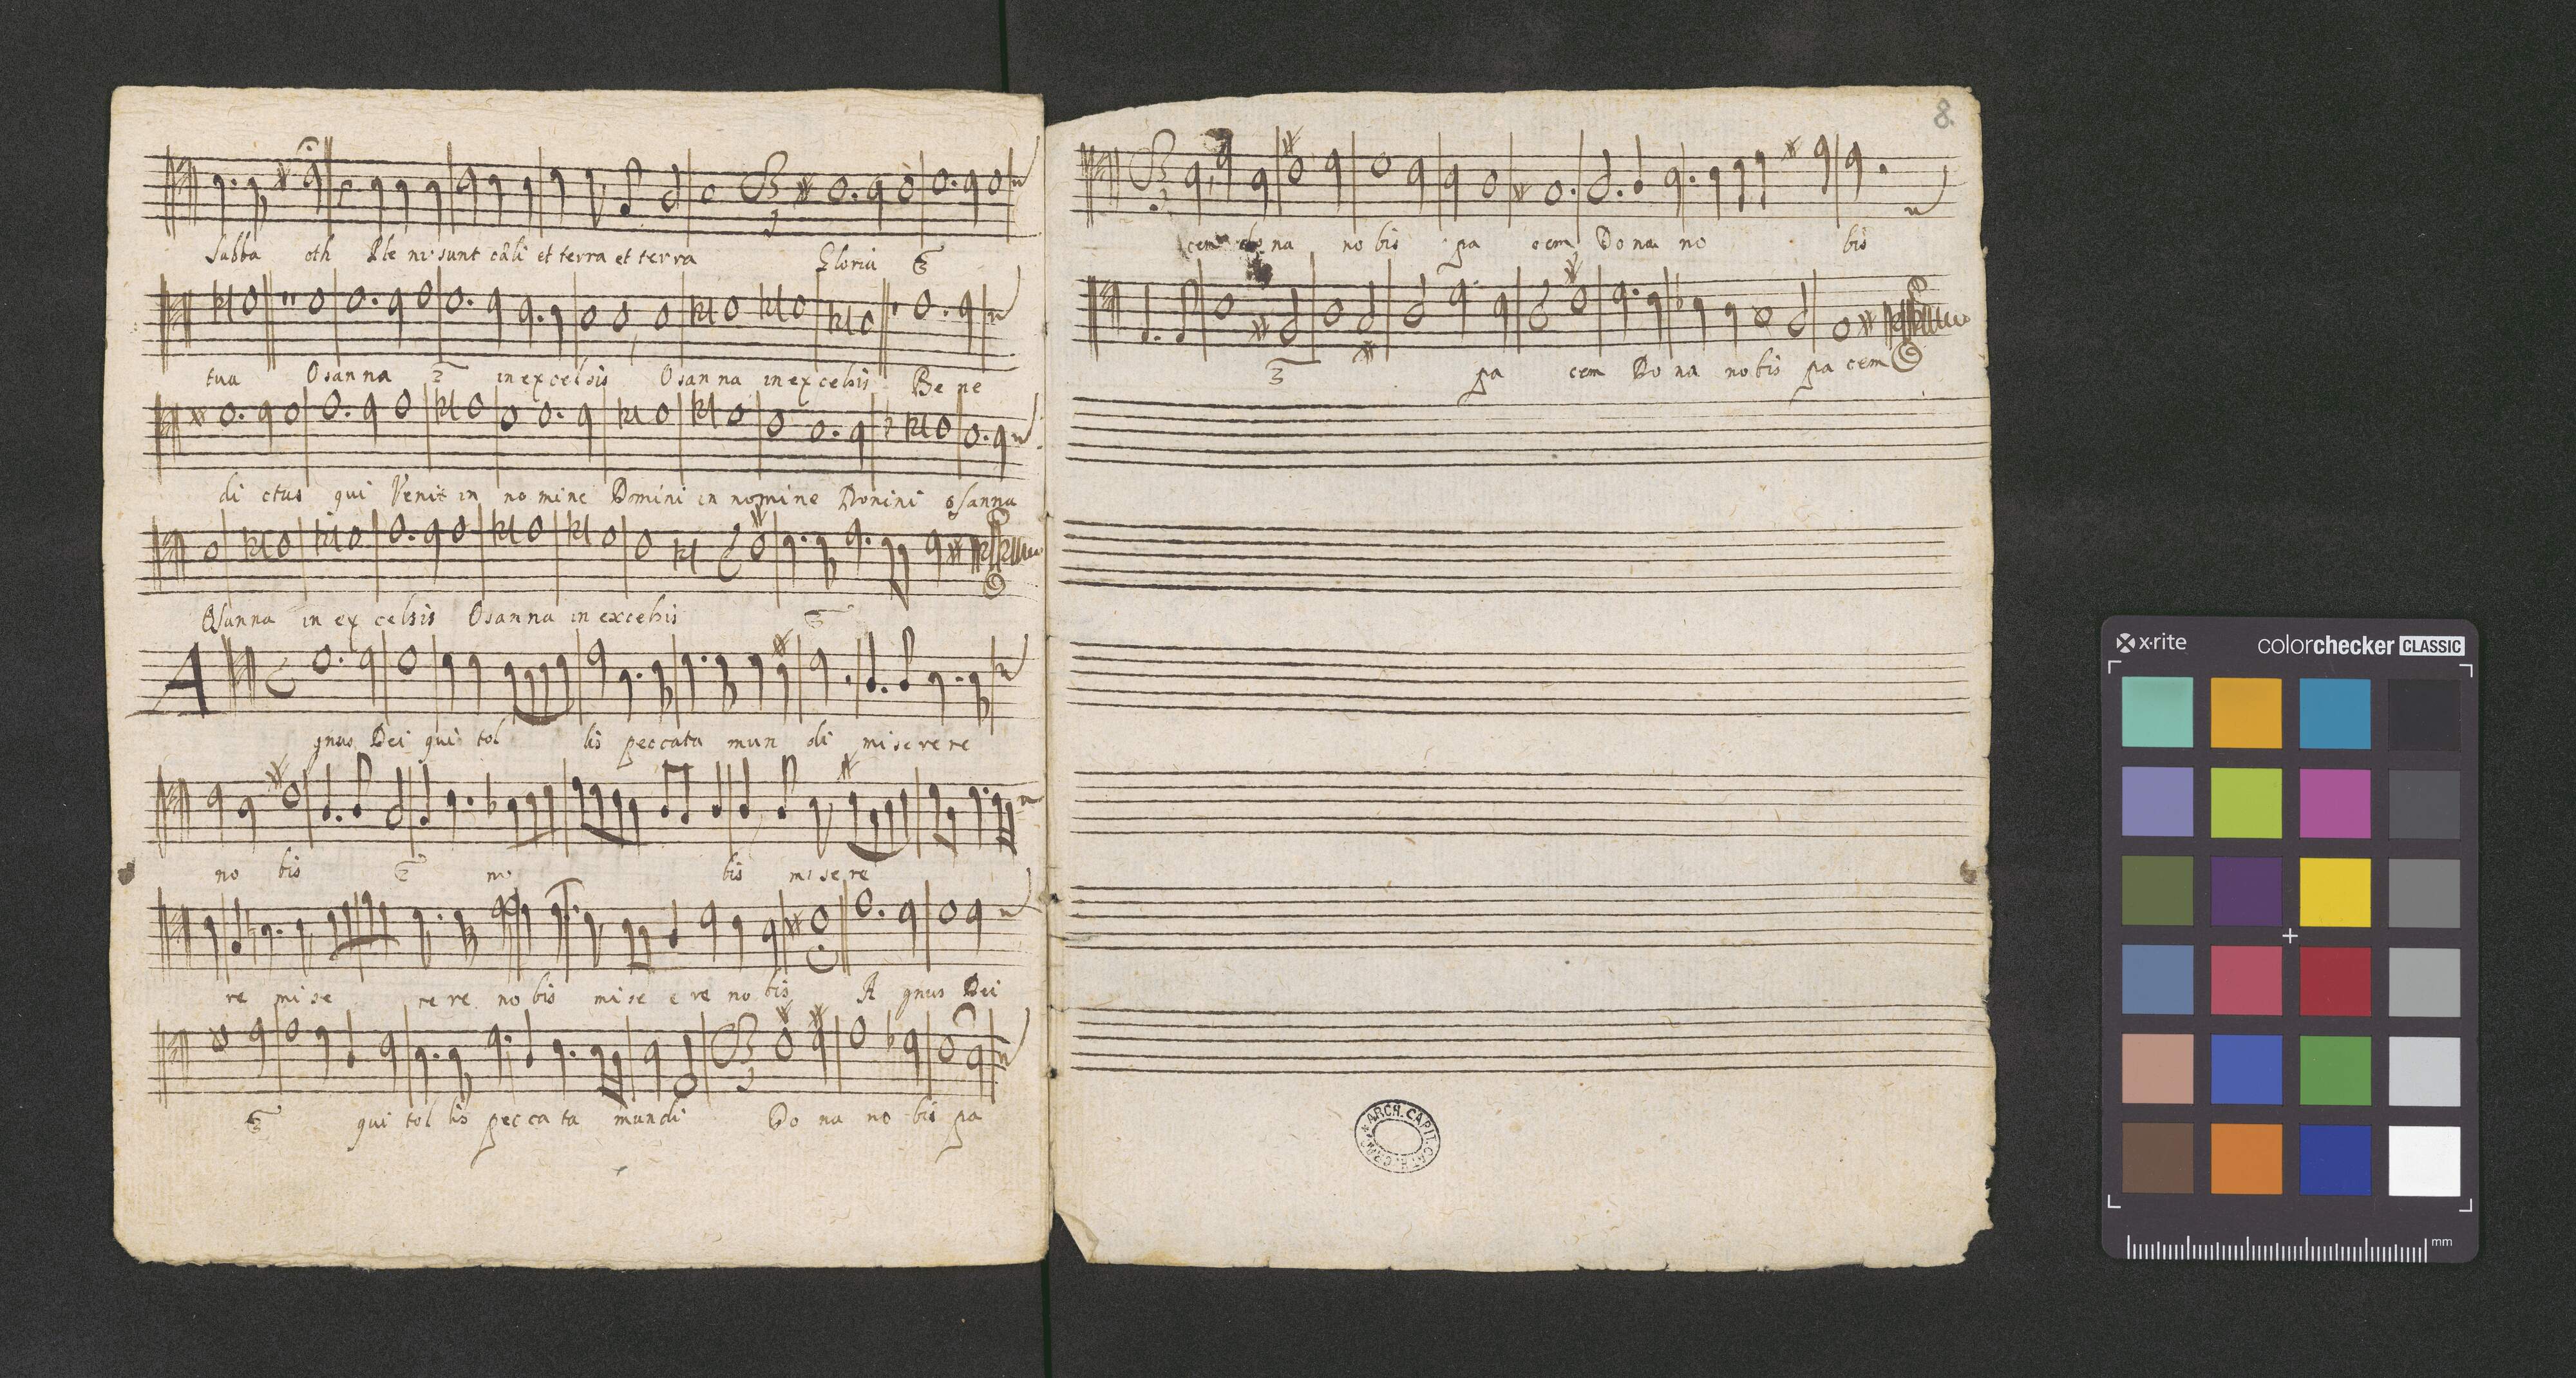 Sabba oth Ple ni sunt cæli et terra et terra Gloria
tua Osanna in excelsis Osanna in excelsis Be ne
di ctus qui Venit in no mine Domini in nomine Donini osanna
Osanna in ex celsis Osanna in excelsis
A gnus Dei qui tol lis peccata mun di mise re re
no bis no bis mi se re
re mi se re re no bis mi se e re no bis A gnus Dei
qui tol lis pec ca ta mundi Do na no bis pa
8.
cem do na no bis pa cem Do na no bis
pa cem Do na no bis pa cem
ARCH. CAPIT. CATH. CRAC.
x-rite colorchecker CLASSIC
mm